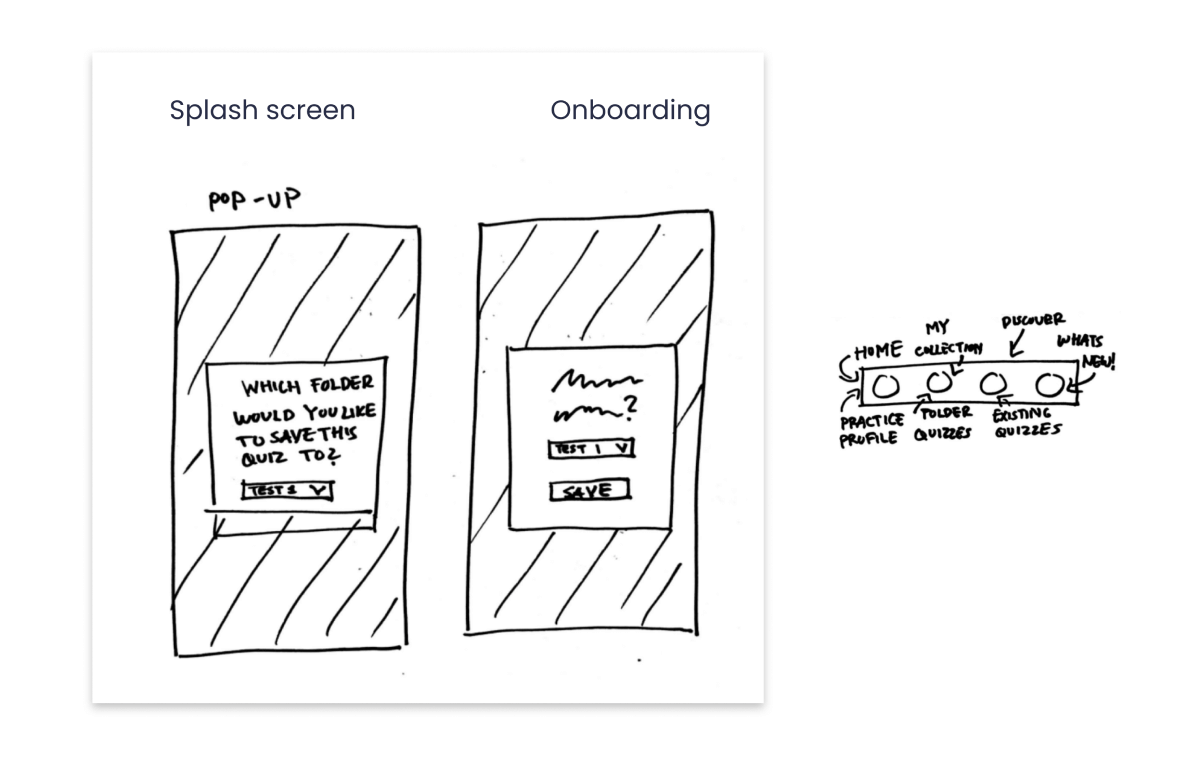 Splash screen
Onboarding
POP-UP
WHICH FOLDER
WOULD YOU LIKE
TO SAVE THIS
QUIZ TO?
TEST 1 V
?
TEST 1 V
SAVE
HOME
MY
COLLECTION
DISCOVER
WHATS
NEW!
PRACTICE
PROFILE
FOLDER
QUIZZES
EXISTING
QUIZZES